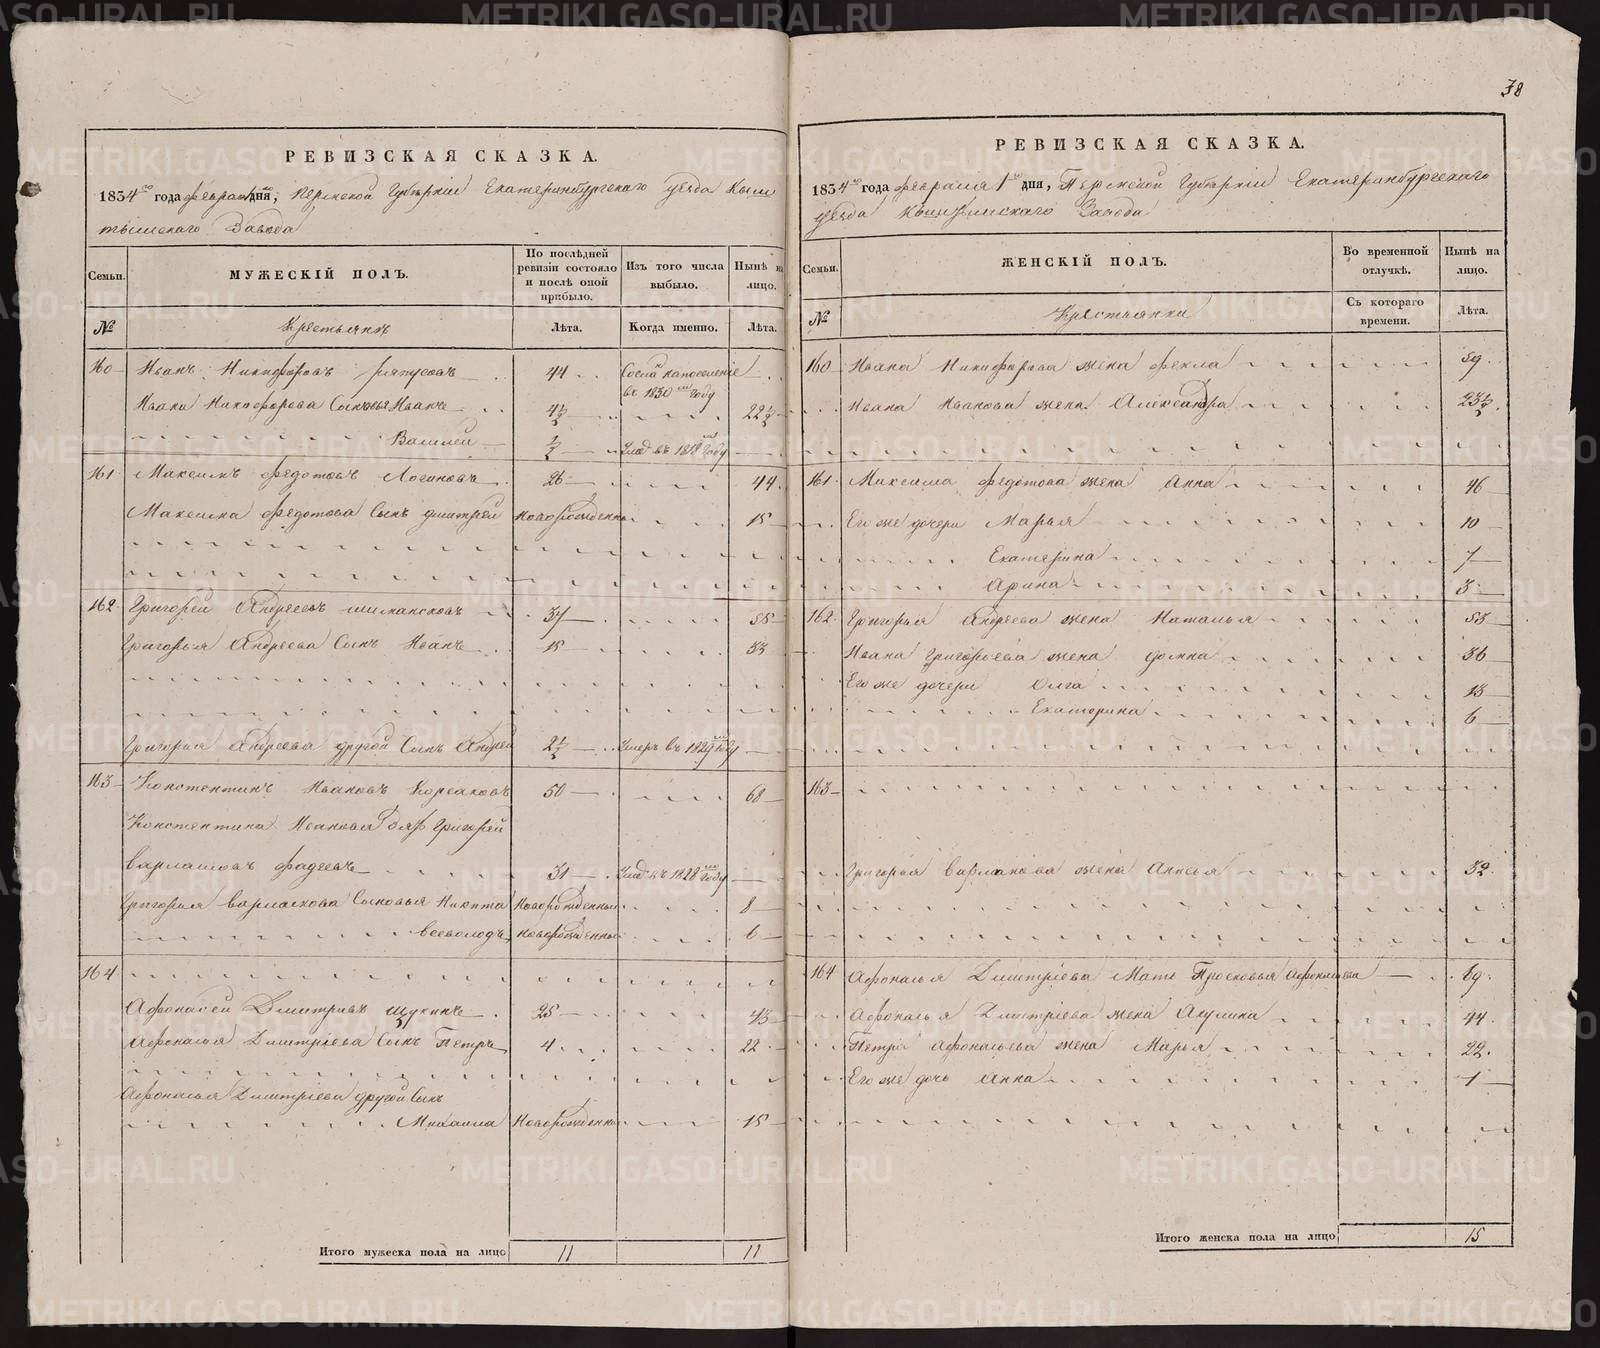 38
РЕВИЗСКАЯ СКАЗКА.
1834го года февраля 1го дня, Пермской Губерніи Екатеринбургскаго уезда Кыш
тымскаго Завода
Семьи.
МУЖЕСКІЙ ПОЛЪ.
По послѣдней ревизіи состояло и послѣ оной прибыло.
Изъ того числа выбыло.
Нынѣ на лицо.
№
Крестьянъ
Лѣта.
Когда именно.
Лѣта.
160 Иванъ Никифоровъ 44 Сослан на поселеніе
въ 1830 году
Ивана Никифорова Сыновья Иванъ 4½ 22½
Василей ½ Умр въ 1818 году
161 Максимъ Федотовъ Логиновъ 26 44
Максима Федотова Сынъ Дмитрей Новорожденны 15
162 Григорей Андреевъ 37 55
Григорья Андреева Сынъ Иванъ 15 33
Григорья Андреева другой Сынъ Андрей 2½ Умеръ въ 1829 году
163 Констентинъ Ивановъ Корсаковъ 50 68
Констентина Иванова Григорей
Варламовъ Фадеевъ 31 Умр въ 1828 году
Григорья Варламова Сыновья Никита Новорожденный 8
Всеволодъ Новорожденный 6
164
Афонасей Дмитріевъ Щукинъ 25 43
Афонасья Дмитріева Сынъ Петръ 4 22
Афонасья Дмитріева другой Сынъ
Михаила Новорожденны 15
Итого мужеска пола на лицо 11 11
РЕВИЗСКАЯ СКАЗКА.
1834го года февраля 1го дня, Пермской Губерніи Екатеринбургскаго
уезда Кыштымскаго Завода
Семьи.
ЖЕНСКІЙ ПОЛЪ.
Во временной отлучкѣ.
Нынѣ на лицо.
№
Крестьянки
Съ котораго времени.
Лѣта.
160 Ивана Никифорова жена Фекла 59
Ивана Иванова жена Александра 23½
161 Максима Федотова жена Анна 46
Его же дочери Марья 10
Екатерина 7
Арина 3
162 Григорья Андреева жена Наталья 53
Ивана Григорьева жена Домна 36
Его же дочери Олга 13
Екатерина 6
163
Григорья Варламова жена Анисья 32
164 Афонасья Дмитріева Мать Просковья Афонасьева 69
Афонасья Дмитріева жена Акулина 44
Петра Афонасьева жена Марья 22
Его же дочь Анна 1
Итого женска пола на лицо 15
METRIKI.GASO-URAL.RU